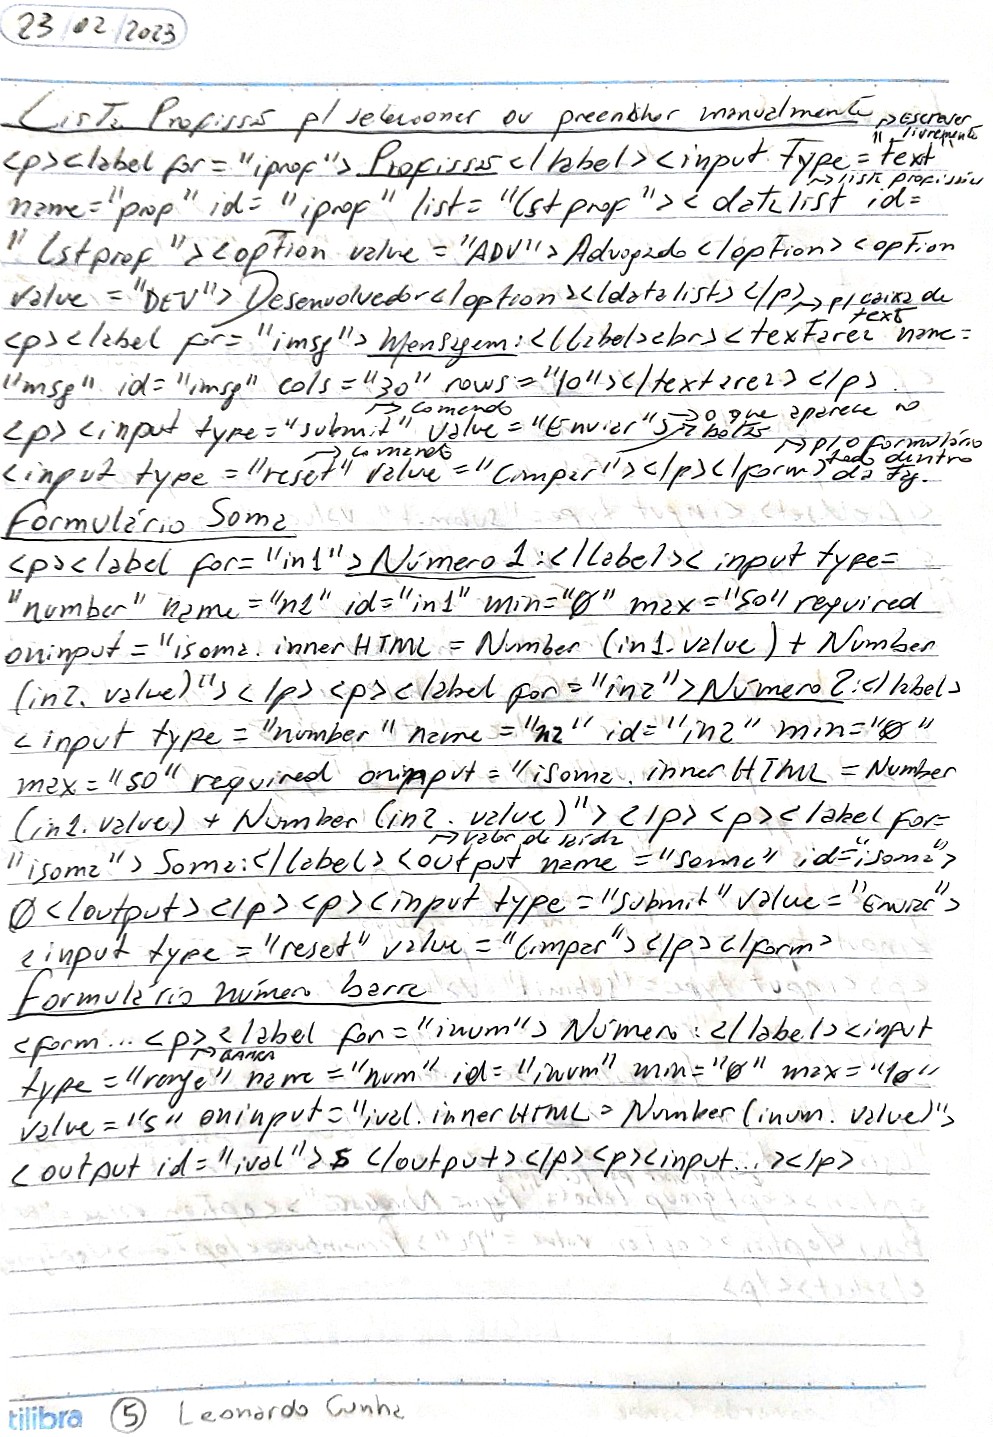 23/02/2023
Lista Profissão p/ selecionar ou preencher manualmente
→ Escrever
livremente
<p><label for="iprof">Profissão</label><input type="text"
→ lista profissões
name="prop" id="iprof" list="lstprof"><datalist id=
"lstprof"><option value="ADV">Advogado</option><option
value="DEV">Desenvolvedor</option></datalist></p>
→ p/ caixa de
text
<p><label for="imsg">Mensagem:</label><br><textarea name=
"msg" id="imsg" cols="30" rows="10"></textarea></p>.
→ comando
→ o que aparece no
botão
<p><input type="submit" value="Enviar">
→ comando
→ p/ o formulário
todo dentro
<input type="reset" value="Limpar"></p></form> da tag.
Formulário Soma
<p><label for="in1">Número 1:</label><input type=
"number" name="n1" id="in1" min="0" max="50" required
oninput="isoma.innerHTML = Number(in1.value) + Number
(in2.value)"></p><p><label for="in2">Número 2:</label>
<input type="number" name="n2" id="in2" min="0"
max="50" required oninput="isoma.innerHTML = Number
(in1.value) + Number(in2.value)"></p><p><label for=
→ valor de saída
"isoma">Soma:</label><output name="soma" id="isoma">
0</output></p><p><input type="submit" value="Enviar">
<input type="reset" value="Limpar"></p></form>
Formulário número barra
<form... <p><label for="inum">Número:</label><input
→ BARRA
type="range" name="num" id="inum" min="0" max="10"
value="5" oninput="ival.innerHTML = Number(inum.value)">
<output id="ival">5</output></p><p><input...></p>
tilibra 5 Leonardo Cunha